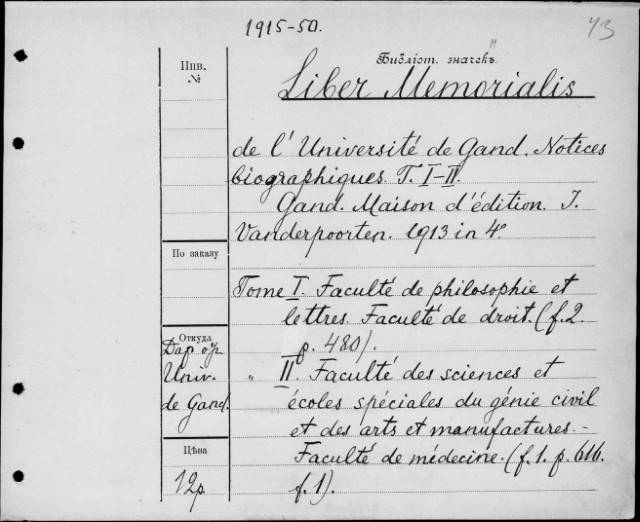 1915-50.
43
Библіот. значекъ
Инв.
№
Liber Memorialis
de l'Université de Gand. Notices
biographiques. T. I-II.
Gand. Maison d'édition. I.
Vanderpoorten. 1913 in 4°.
По заказу
Tome I. Faculté de philosophie et
lettres. Faculté de droit. (f. 2.
p. 480).
Откуда
Дар от
Univ.
de Gand.
" II. Faculté des sciences et
écoles spéciales du génie civil
et des arts et manufactures. -
Faculté de médecine. (f. 1. p. 616.
f. 1).
Цѣна
12р